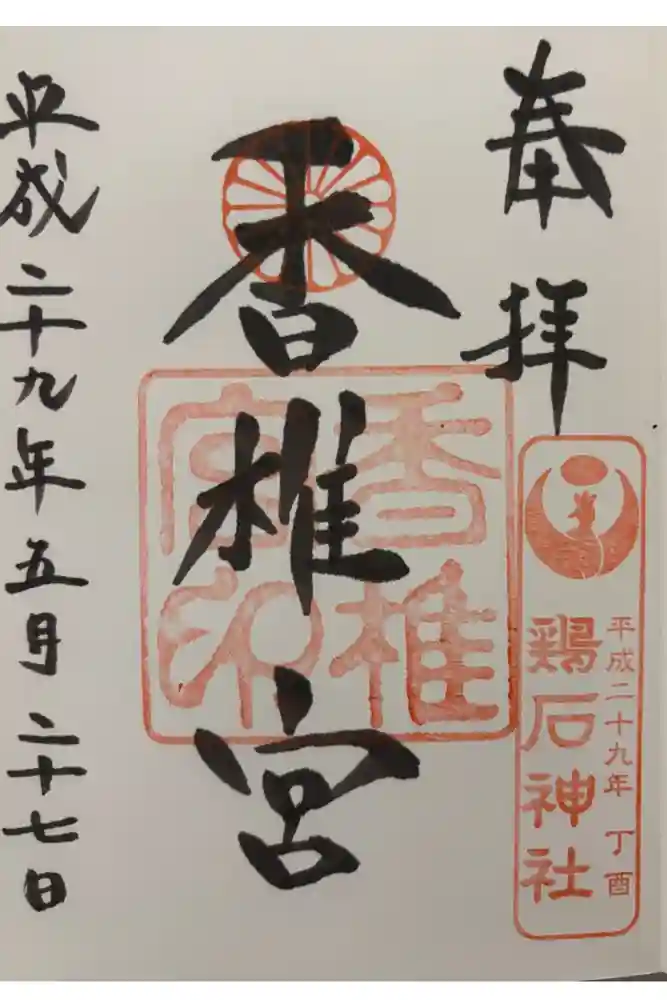 奉拝
平成二十九年 丁酉
鶏石神社
香椎宮
香椎宮印
平成二十九年五月二十七日